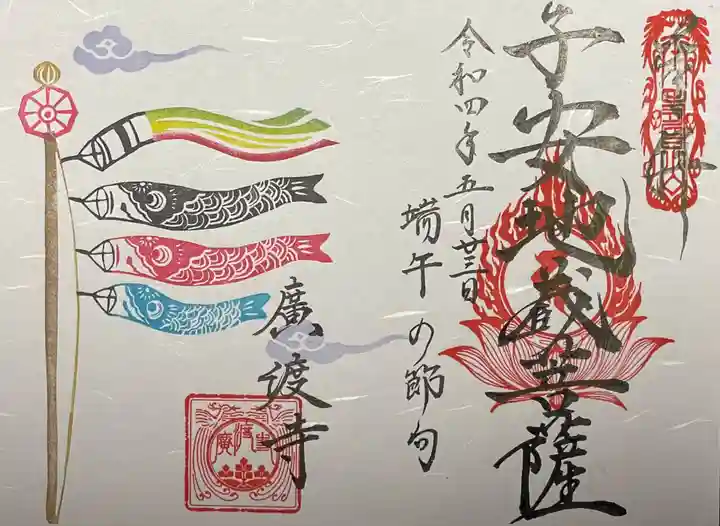 子安地蔵菩薩
令和四年五月廿三日
端午の節句
廣渡寺
廣渡寺